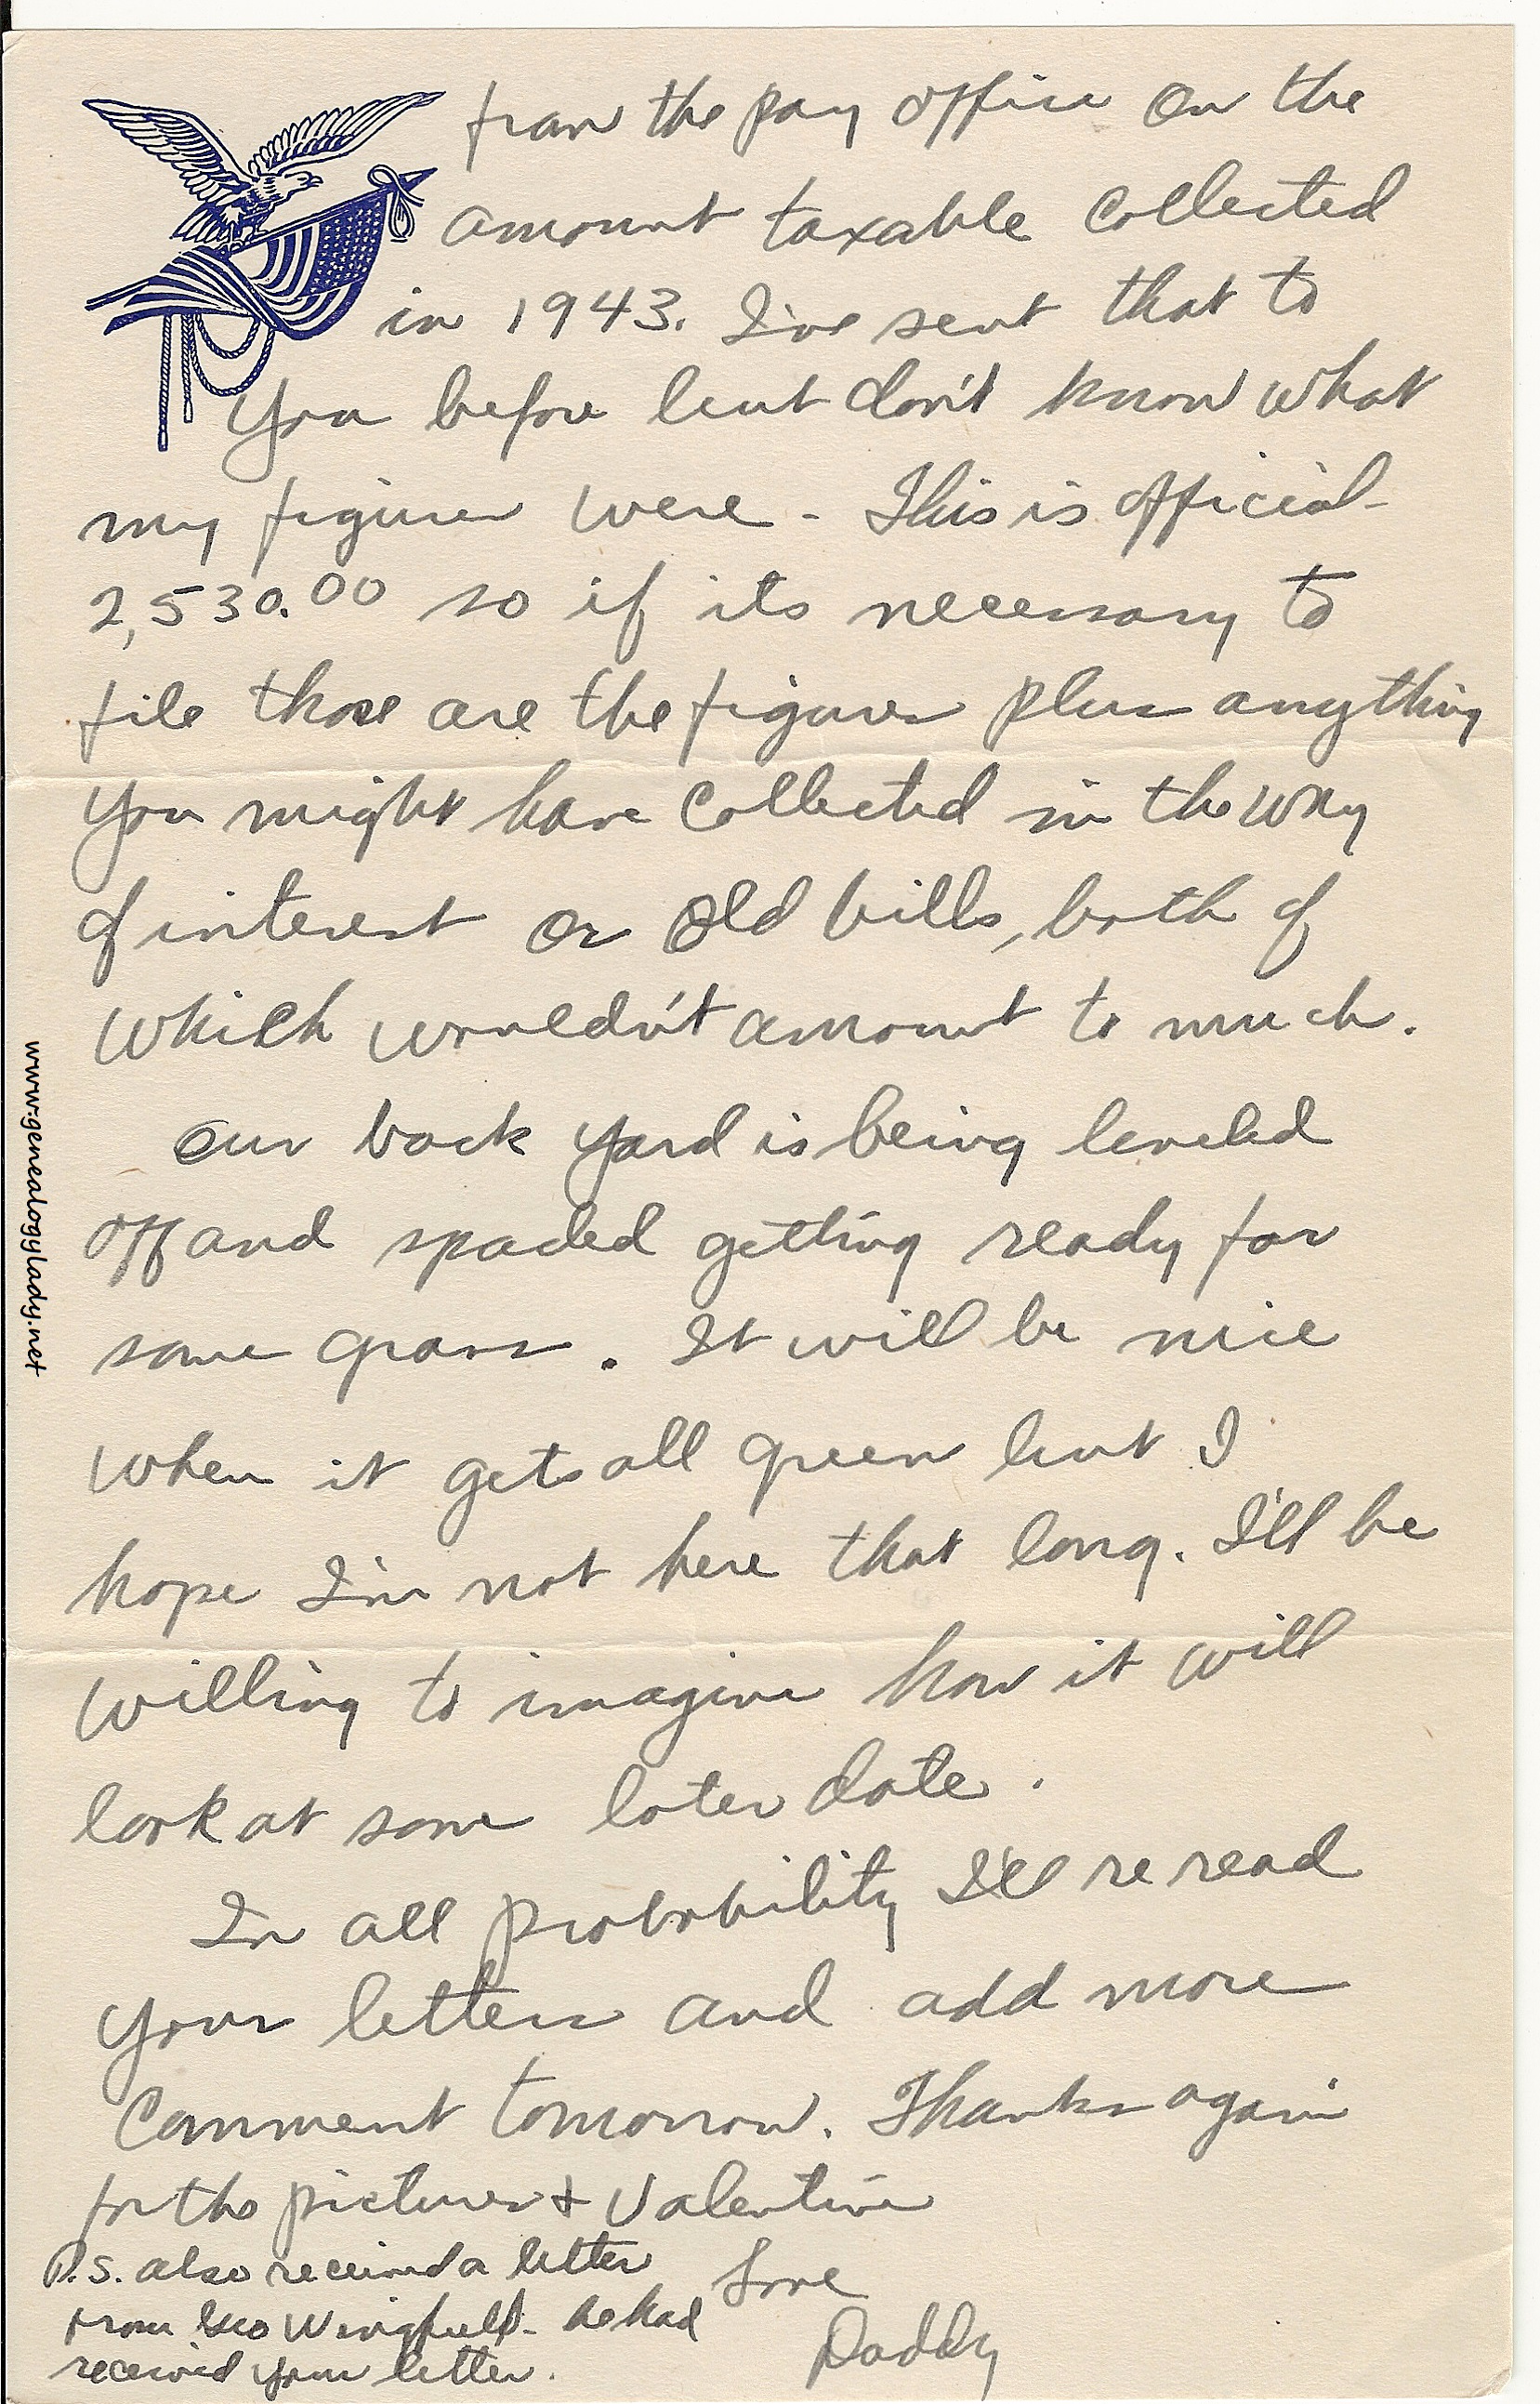 from the pay office on the
amount taxable collected
in 1943. I've sent that to
you before but don't know what
my figures were - This is official -
2,530.00 so if its necessary to
file those are the figures plus anything
you might have collected in the way
of interest or old bills, both of
which wouldn't amount to much.
Our back yard is being leveled
off and spaded getting ready for
some grass. It will be nice
when it gets all green but I
hope I'm not here that long. I'll be
willing to imagine how it will
look at some later date.
In all probability I'll re read
your letters and add more
comment tomorrow. Thanks again
for the pictures & Valentine
Love
Daddy
P.S. also received a letter
from Geo Wingfield - he had
received your letter.
www.genealogylady.net